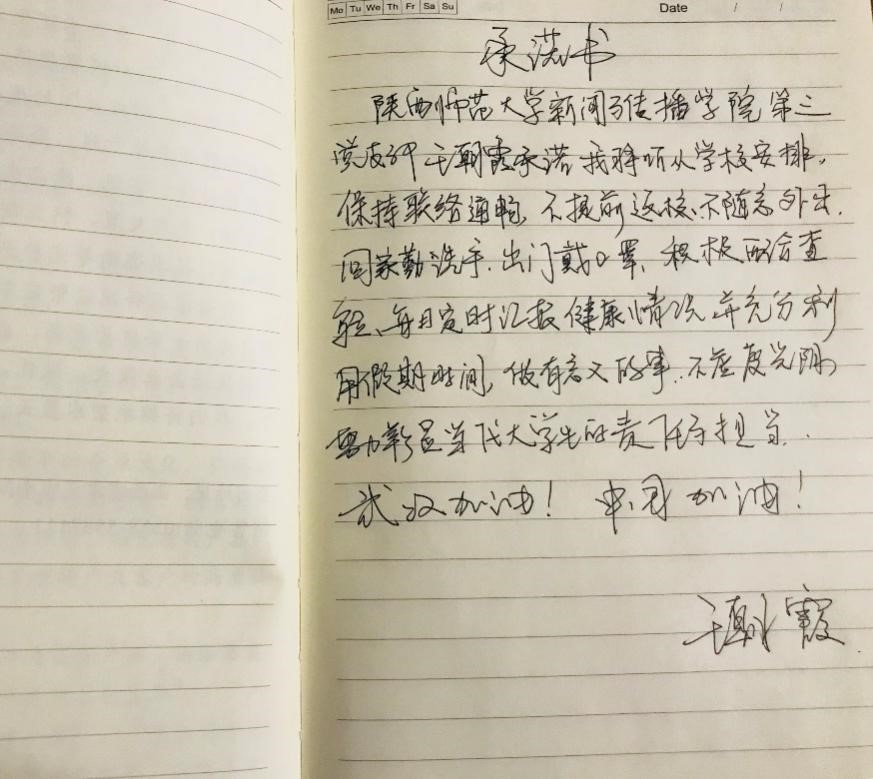 Mo Tu We Th Fr Sa Su Date / /
承诺书
陕西师范大学新闻与传播学院第三
党支部王朝霞承诺我将听从学校安排,
保持联络通畅,不提前返校、不随意外出,
回家勤洗手、出门戴口罩、积极配合查
验、每日定时汇报健康情况并充分利
用假期时间,做有意义的事,不虚度光阴
努力彰显当代大学生的责任与担当.
武汉加油! 中国加油!
王朝霞